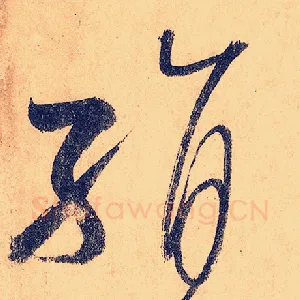 絹
Shufawang.CN